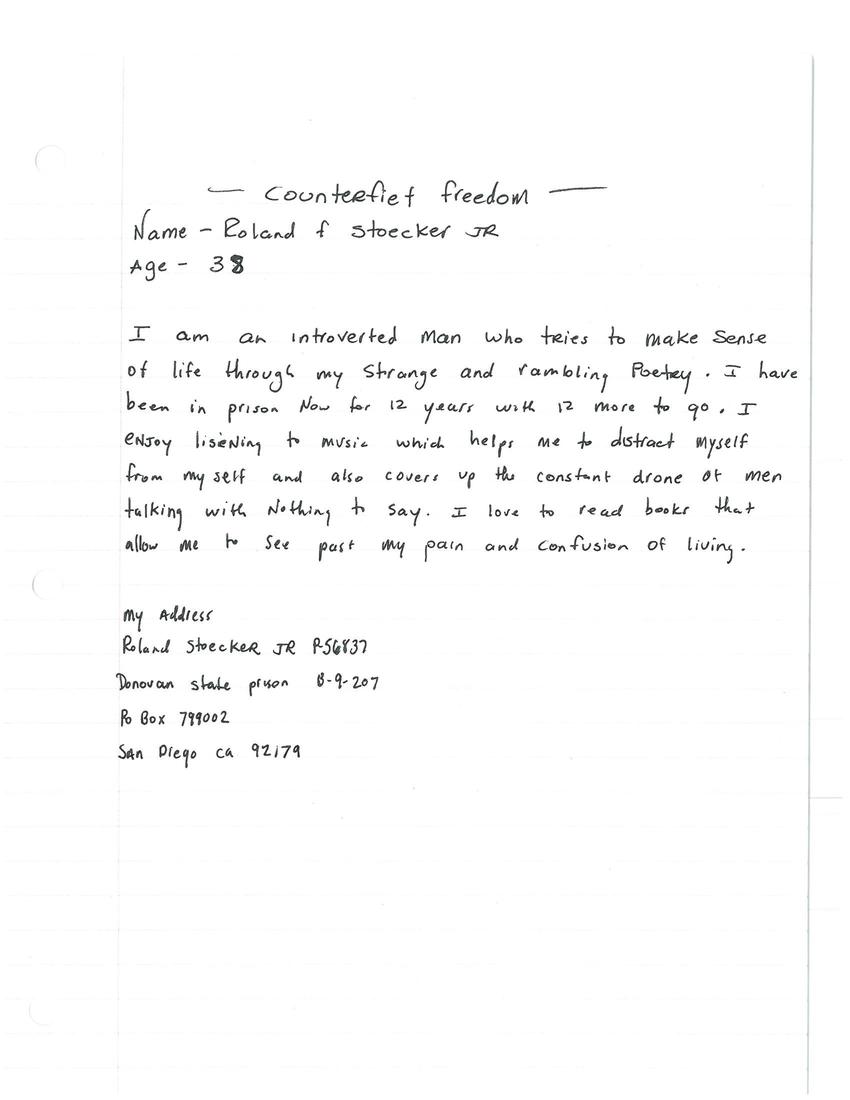 — Counterfiet freedom —
Name - Roland f Stoecker JR
Age - 38
I am an introverted man who tries to make Sense
of life through my Strange and rambling Poetry. I have
been in prison Now for 12 years with 12 more to go. I
eNJoy lisieNing to music which helps me to distract myself
from my self and also covers up the constant drone of men
talking with Nothing to say. I love to read books that
allow me to See past my pain and confusion of living.
my Address
Roland StoeckeR JR P-56837
Donovan state prison B-9-207
Po Box 799002
SAn Diego ca 92179